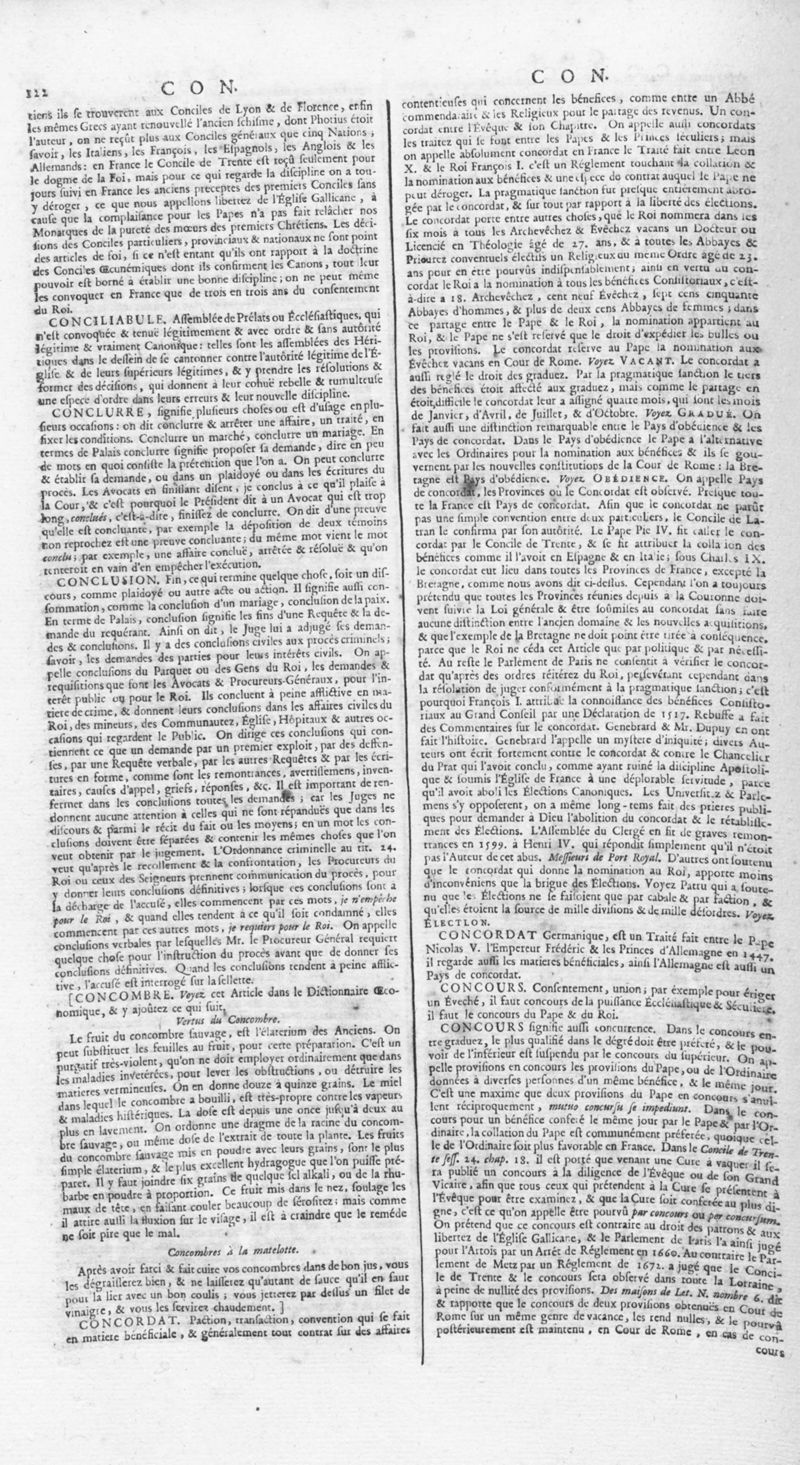 322
CON.
tiens ils se trouverent aux Conciles de Lyon & de Florence, enfin
les mêmes Grecs ayant renouvellé l'ancien schisme, dont Photius étoit
l'auteur, on ne reçût plus aux Conciles généraux que cinq Nations,
savoir, les Italiens, les François, les Espagnols, les Anglois & les
Allemands: en France le Concile de Trente est reçû seulement pour
le dogme de la Foi, mais pour ce qui regarde la discipline on a tou-
jours suivi en France les anciens preceptes des premiers Conciles sans
y déroger, ce que nous appellons libertez de l'Église Gallicane, à
cause que la complaisance pour les Papes n'a pas fait relâcher nos
Monarques de la pureté des mœurs des premiers Chrétiens. Les déci-
sions des Conciles particuliers, provinciaux & nationaux ne sont point
des articles de foi, si ce n'est entant qu'ils ont rapport à la doctrine
des Conciles Œcuméniques dont ils confirment les Canons, tout leur
pouvoir est borné à établir une bonne discipline; on ne peut même
les convoquer en France que de trois en trois ans du consentement
du Roi.
CONCILIABULE. Assemblée de Prélats ou Écclésiastiques, qui
n'est convoquée & tenuë légitimement & avec ordre & sans autorité
légitime & vraiment Canonique: telles sont les assemblées des Héri-
tiques dans le dessein de se cantonner contre l'autôrité légitime de l'É-
glise & de leurs supérieurs légitimes, & y prendre les résolutions &
former des décisions, qui donnent à leur cohuë rebelle & tumultueuse
une espece d'ordre dans leurs erreurs & leur nouvelle discipline.
CONCLURRE, signifie plusieurs choses ou est d'usage en plu-
sieurs occasions: on dit conclurre & arrêter une affaire, un traité, en
fixer les conditions. Conclurre un marché, conclurre un mariage. En
termes de Palais conclurre signifie proposer sa demande, dire en peu
de mots en quoi consiste la prétention que l'on a. On peut conclurre
& établir sa demande, ou dans un plaidoyé ou dans les écritures du
procés. Les Avocats en finissant disent, je conclus à ce qu'il plaise à
la Cour, & c'est pourquoi le Président dit à un Avocat qui est trop
long, concluës, c'est-à-dire, finissez de conclurre. On dit d'une preuve
qu'elle est concluante, par exemple la déposition de deux témoins
non reprochez est une preuve concluante; du même mot vient le mot
conclu; par exemple, une affaire concluë, arrêtée & résoluë & qu'on
tenteroit en vain d'en empêcher l'exécution.
CONCLUSION. Fin, ce qui termine quelque chose, soit un dis-
cours, comme plaidoyé ou autre acte ou action. Il signifie aussi con-
sommation, comme la conclusion d'un mariage, conclusion de la paix.
En terme de Palais, conclusion signifie les fins d'une Requête & la de-
mande du requérant. Ainsi on dit, le Juge lui a adjugé ses deman-
des & conclusions. Il y a des conclusions civiles aux procès criminels;
savoir, les demandes des parties pour leurs intérêts civils. On ap-
pelle conclusions du Parquet ou des Gens du Roi, les demandes &
requisitions que font les Avocats & Procureurs-Généraux, pour l'in-
terêt public ou pour le Roi. Ils concluent à peine afflictive en ma-
tiere de crime, & donnent leurs conclusions dans les affaires civiles du
Roi, des mineurs, des Communautez, Église, Hôpitaux & autres oc-
casions qui regardent le Public. On dirige ces conclusions qui con-
tiennent ce que un demande par un premier exploit, par des deffen-
ses, par une Requête verbale, par les autres Requêtes & par les écri-
tures en forme, comme sont les remontrances, avertissemens, inven-
taires, causes d'appel, griefs, réponses, &c. Il est important de ren-
fermer dans les conclusions toutes les demandes; car les Juges ne
donnent aucune attention à celles qui ne sont répanduës que dans les
discours & parmi le récit du fait ou les moyens; en un mot les con-
clusions doivent être séparées & contenir les mêmes choses que l'on
veut obtenir par le jugement. L'Ordonnance criminelle au tit. 24.
veut qu'après le recollement & la confrontation, les Procureurs du
Roi ou ceux des Seigneurs prennent communication du procès, pour
y donner leurs conclusions définitives; lorsque ces conclusions sont à
la décharge de l'accusé, elles commencent par ces mots, je n'empêche
pour le Roi, & quand elles tendent à ce qu'il soit condamné, elles
commencent par ces autres mots, je requiers pour le Roi. On appelle
conclusions verbales par lesquelles Mr. le Procureur Général requiert
quelque chose pour l'instruction du procès avant que de donner ses
conclusions définitives. Quand les conclusions tendent à peine afflic-
tive, l'accusé est interrogé sur la sellette.
[CONCOMBRE. Voyez cet Article dans le Dictionnaire Œco-
nomique, & y ajoûtez ce qui suit.
Vertus du Concombre.
Le fruit du concombre sauvage, est l'élaterium des Anciens. On
peut substituer les feuilles au fruit, pour cette préparation. C'est un
purgatif très-violent, qu'on ne doit employer ordinairement que dans
les maladies invétérées, pour lever les obstructions, ou détruire les
matieres vermineuses. On en donne douze à quinze grains. Le miel
dans lequel le concombre a bouilli, est très-propre contre les vapeurs
& maladies histériques. La dose est depuis une once jusqu'à deux au
plus en lavement. On ordonne une dragme de la racine du concom-
bre sauvage, ou même dose de l'extrait de toute la plante. Les fruits
du concombre sauvage mis en poudre avec leurs grains, sont le plus
simple élaterium, & le plus excellent hydragogue que l'on puisse pré-
parer. Il y faut joindre six grains de quelque sel alkali, ou de la rhu-
barbe en poudre à proportion. Ce fruit mis dans le nez, soulage les
maux de tête, en faisant couler beaucoup de sérositez: mais comme
il attire aussi la fluxion sur le visage, il est à craindre que le remède
ne soit pire que le mal.
Concombres à la matelotte.
Après avoir farci & fait cuire vos concombres dans de bon jus, vous
les dégraisserez bien, & ne laisserez qu'autant de sauce qu'il en faut
pour la lier avec un bon coulis; vous jetterez par dessus un filet de
vinaigre, & vous les servirez chaudement.]
CONCORDAT. Paction, transaction, convention qui se fait
en matiere bénéficiale, & généralement tout contrat sur des affaires
CON.
contentieuses qui concernent les bénéfices, comme entre un Abbé
commendataire & les Religieux pour le partage des revenus. Un con-
cordat entre l'Évêque & son Chapitre. On appelle aussi concordats
les traitez qui se font entre les Papes & les Princes séculiers; mais
on appelle absolument concordat en France le Traité fait entre Leon
X. & le Roi François I. c'est un Réglement touchant la collation &
la nomination aux bénéfices & une espece de contrat auquel le Pape ne
peut déroger. La pragmatique sanction fut presque entierement abro-
gée par le concordat, & sur tout par rapport à la liberté des élections.
Le concordat porte entre autres choses, que le Roi nommera dans les
six mois à tous les Archevêchez & Évêchez vacans un Docteur ou
Licencié en Théologie âgé de 27. ans, & à toutes les Abbayes &
Prieurez conventuels électifs un Religieux du meme Ordre âgé de 23.
ans pour en être pourvûs indispensablement; ainsi en vertu du con-
cordat le Roi a la nomination à tous les bénéfices Consistoriaux, c'est-
à-dire a 18. Archevêchez, cent neuf Évêchez, sept cens cinquante
Abbayes d'hommes, & plus de deux cens Abbayes de femmes; dans
ce partage entre le Pape & le Roi, la nomination appartient au
Roi, & le Pape ne s'est reservé que le droit d'expédier les bulles ou
les provisions. Le concordat reserve au Pape la nomination aux
Évêchez vacans en Cour de Rome. Voyez VACANT. Le concordat a
aussi reglé le droit des graduez. Par la pragmatique sanction le tiers
des bénéfices étoit affecté aux graduez, mais comme le partage en
étoit difficile le concordat leur a assigné quatre mois, qui sont les mois
de Janvier, d'Avril, de Juillet, & d'Octobre. Voyez GRADUÉ. On
fait aussi une distinction remarquable entre le Pays d'obédience & les
Pays de concordat. Dans le Pays d'obédience le Pape a l'alternative
avec les Ordinaires pour la nomination aux bénéfices & ils se gou-
vernent par les nouvelles constitutions de la Cour de Rome: la Bre-
tagne est Pays d'obédience. Voyez OBÉDIENCE. On appelle Pays
de concordat, les Provinces où le Concordat est observé. Presque tou-
te la France est Pays de concordat. Afin que le concordat ne parût
pas une simple convention entre deux particuliers, le Concile de La-
tran le confirma par son autôrité. Le Pape Pie IV. fit caller le con-
cordat par le Concile de Trente, & se fit attribuer la collation des
bénéfices comme il l'avoit en Espagne & en Italie; sous Charles IX.
le concordat eut lieu dans toutes les Provinces de France, excepté la
Bretagne, comme nous avons dit ci-dessus. Cependant l'on a toujours
prétendu que toutes les Provinces réunies depuis à la Couronne doi-
vent suivre la Loi générale & être soûmises au concordat sans faire
aucune distinction entre l'ancien domaine & les nouvelles acquisitions,
& que l'exemple de la Bretagne ne doit point être tirée à conséquence,
parce que le Roi ne céda cet Article que par politique & par nécessi-
té. Au reste le Parlement de Paris ne consentit à vérifier le concor-
dat qu'après des ordres réitérez du Roi, persévérant cependant dans
la résolation de juger conformément à la pragmatique sanction; c'est
pourquoi François I. attribua la connoissance des bénéfices Consisto-
riaux au Grand Conseil par une Déclaration de 1517. Rebuffe a fait
des Commentaires sur le concordat. Genebrard & Mr. Dupuy en ont
fait l'histoire. Genebrard l'appelle un mystere d'iniquité; divers Au-
teurs ont écrit fortement contre le concordat & contre le Chancelier
du Prat qui l'avoit conclu, comme ayant ruiné la discipline Apostoli-
que & soumis l'Église de France à une déplorable servitude, parce
qu'il avoit aboli les Élections Canoniques. Les Universitez & Parle-
mens s'y opposerent, on a même long-tems fait des prieres publi-
ques pour demander à Dieu l'abolition du concordat & le rétablisse-
ment des Élections. L'Assemblée du Clergé en fit de graves remon-
trances en 1599. à Henri IV. qui répondit simplement qu'il n'étoit
pas l'Auteur de cet abus. Messieurs de Port Royal. D'autres ont soutenu
que le concordat qui donne la nomination au Roi, apporte moins
d'inconvéniens que la brigue des Élections. Voyez Patru qui a soute-
nu que les Élections ne se faisoient que par cabale & par faction, &
qu'elles étoient la source de mille divisions & de mille désordres. Voyez
ÉLECTION.
CONCORDAT Germanique, est un Traité fait entre le Pape
Nicolas V. l'Empereur Frédéric & les Princes d'Allemagne en 1447.
il regarde aussi les matieres bénéficiales, ainsi l'Allemagne est aussi un
Pays de concordat.
CONCOURS. Consentement, union; par éxemple pour ériger
un Évêché, il faut concours de la puissance Ecclésiastique & Séculiere,
il faut le concours du Pape & du Roi.
CONCOURS signifie aussi concurrence. Dans le concours en-
tre graduez, le plus qualifié dans le dégré doit être préféré, & le pou-
voir de l'inférieur est suspendu par le concours du supérieur. On ap-
pelle provisions en concours les provisions du Pape, ou de l'Ordinaire
données à diverses personnes d'un même bénéfice, & le même jour.
C'est une maxime que deux provisions du Pape en concours s'anul-
lent réciproquement, mutuo concursu se impediunt. Dans le con-
cours pour un bénéfice conferé le même jour par le Pape & par l'Or-
dinaire, la collation du Pape est communément préferée, quoique cel-
le de l'Ordinaire soit plus favorable en France. Dans le Concile de Tren-
te sess. 24. chap. 18. il est porté que venant une Cure à vaquer il se-
ra publié un concours à la diligence de l'Évêque ou de son Grand
Vicaire, afin que tous ceux qui prétendent à la Cure se présentent à
l'Évêque pour être examinez, & que la Cure soit conferée au plus di-
gne, c'est ce qu'on appelle être pourvû par concours ou per concursum.
On prétend que ce concours est contraire au droit des patrons & aux
libertez de l'Église Gallicane, & le Parlement de Paris l'a ainsi jugé
pour l'Artois par un Arrêt de Réglement en 1660. Au contraire le Par-
lement de Metz par un Réglement de 1672. a jugé que le Conci-
le de Trente & le concours sera observé dans toute la Lorraine,
à peine de nullité des provisions. Des maisons de Let. N. nombre 6. dit
& rapporte que le concours de deux provisions obtenuës en Cour de
Rome sur un même genre de vacance, les rend nulles, & le pourvû
postérieurement est maintenu, en Cour de Rome, en cas de con-
cours